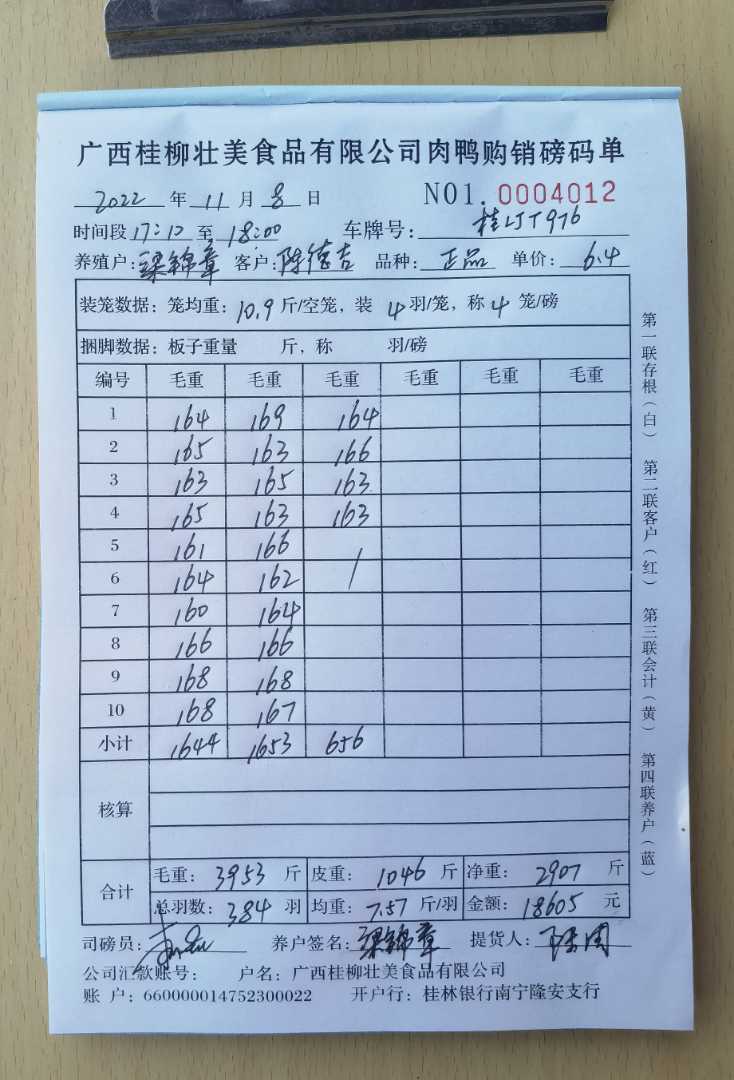 广西桂柳壮美食品有限公司肉鸭购销磅码单
2022 年 11 月 8 日 NO1. 0004012
时间段 17:10 至 18:00 车牌号: 桂LJT976
养殖户: 梁锦章 客户: 陈德吉 品种: 正品 单价: 6.4
装笼数据: 笼均重: 10.9 斤/空笼, 装 4 羽/笼, 称 4 笼/磅
捆脚数据: 板子重量 斤, 称 羽/磅
编号 毛重 毛重 毛重 毛重 毛重 毛重
1 164 169 164
2 165 163 166
3 163 165 163
4 165 163 163
5 161 166
6 164 162 /
7 160 164
8 166 166
9 168 168
10 168 167
小计 1644 1653 656
核算
合计
毛重: 3953 斤 皮重: 1046 斤 净重: 2907 斤
总羽数: 384 羽 均重: 7.57 斤/羽 金额: 18605 元
司磅员: 养户签名: 梁锦章 提货人:
公司汇款账号: 户名: 广西桂柳壮美食品有限公司
账 户: 660000014752300022 开户行: 桂林银行南宁隆安支行
第一联存根(白) 第二联客户(红) 第三联会计(黄) 第四联养户(蓝)